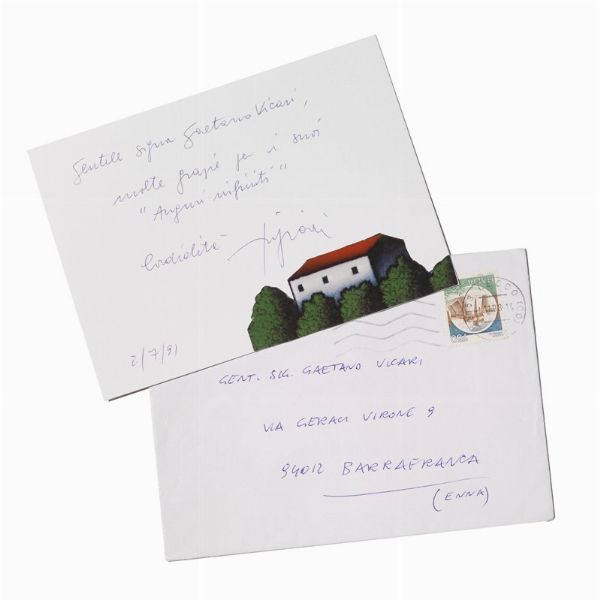 Gentile signor Gaetano Vicari,
molte grazie per i suoi
"Auguri infiniti"
Cordialità
2/7/91
GENT. SIG. GAETANO VICARI
VIA GERACI VIRONE 9
94012 BARRAFRANCA
(ENNA)